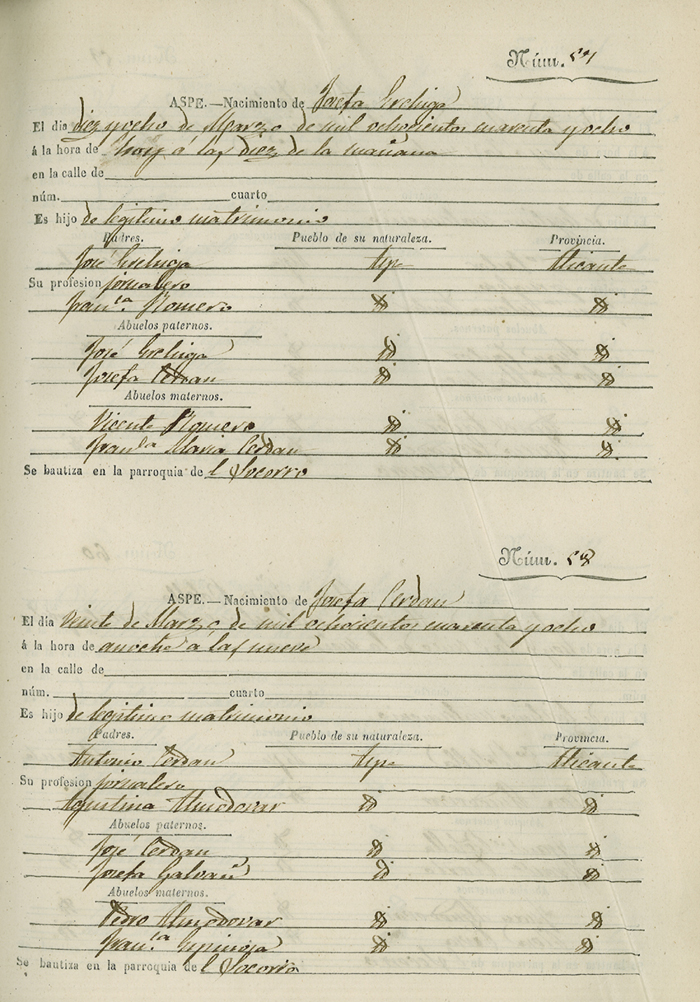 Núm. 57
ASPE.—Nacimiento de Josefa Erchiga
El dia diez y ocho de Marzo de mil ochocientos cuarenta y ocho
á la hora de hoy á las diez de la mañana
en la calle de
núm. cuarto
Es hijo de legitimo matrimonio
Padres. Pueblo de su naturaleza. Provincia.
José Aspe Alicante
Su profesion jornalero
Fran.ca Romero id id
Abuelos paternos.
José id id
Josefa Cerdan id id
Abuelos maternos.
Vicente Romero id id
Fran.ca Maria Cerdan id id
Se bautiza en la parroquia de l Socorro
Núm. 58
ASPE.—Nacimiento de Josefa Cerdan
El dia veinte de Marzo de mil ochocientos cuarenta y ocho
á la hora de anoche á las nueve
en la calle de
núm. cuarto
Es hijo de legitimo matrimonio
Padres. Pueblo de su naturaleza. Provincia.
Antonio Cerdan Aspe Alicante
Su profesion jornalero
Agustina Almodovar id id
Abuelos paternos.
José Cerdan id id
Josefa Galvañ id id
Abuelos maternos.
Pedro Almodovar id id
Fran.ca Espinosa id id
Se bautiza en la parroquia de l Socorro